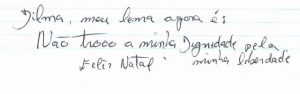 Dilma, meu lema agora é:
Não troco a minha Dignidade pela
Feliz Natal minha liberdade